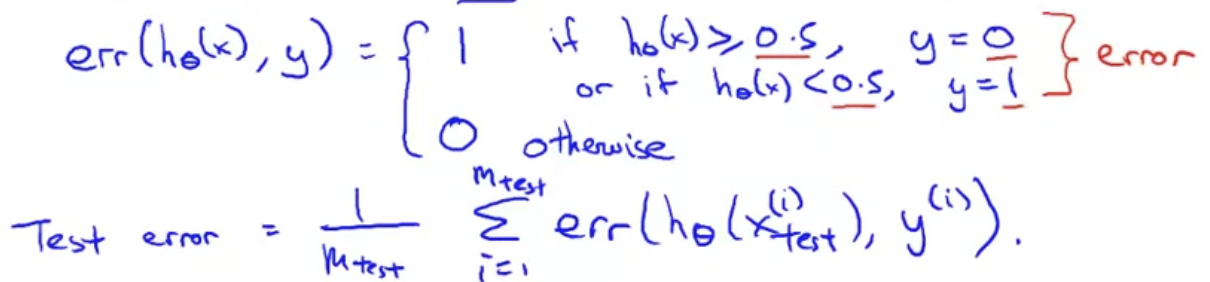 err(hθ(x), y) = { 1 if hθ(x) ≥ 0.5, y = 0 } error
or if hθ(x) < 0.5, y = 1
0 otherwise
Test error = 1/m_test Σ_{i=1}^{m_test} err(hθ(x_test^(i)), y^(i)).